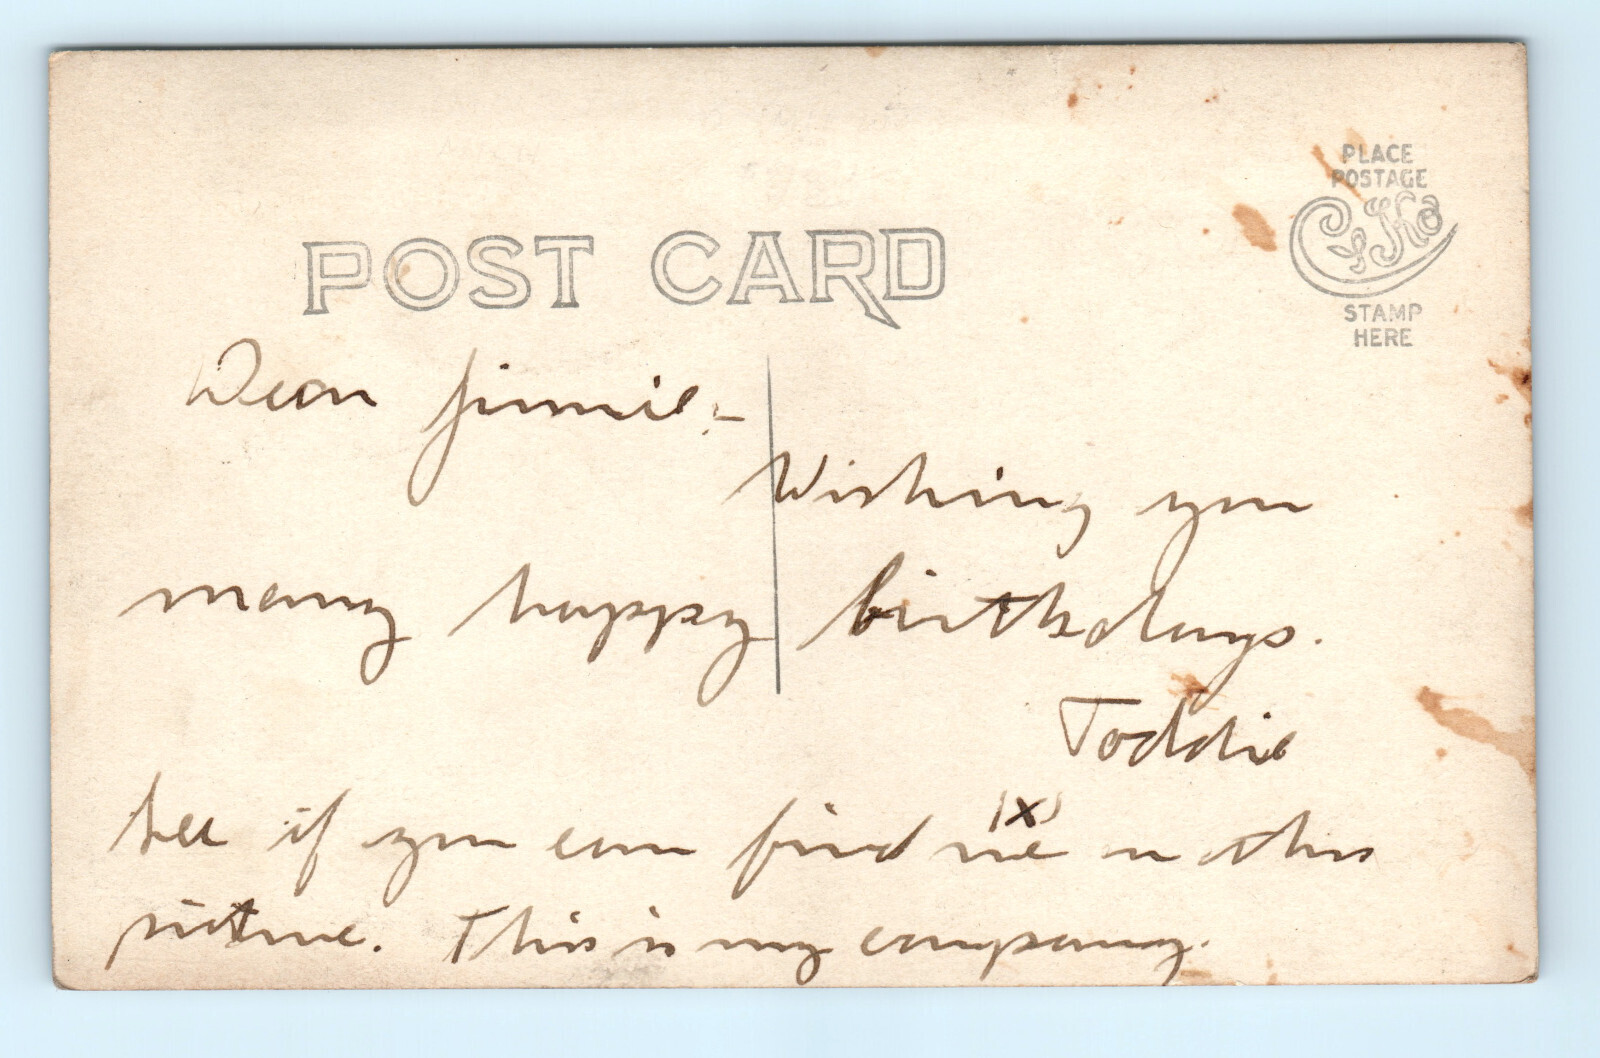 PLACE
POSTAGE
CYKO
STAMP
HERE
POST CARD
Dear Jimmie,-
Wishing you
many happy birthdays.
Toddie
(X)
See if you can find me in this
picture. This is my company.